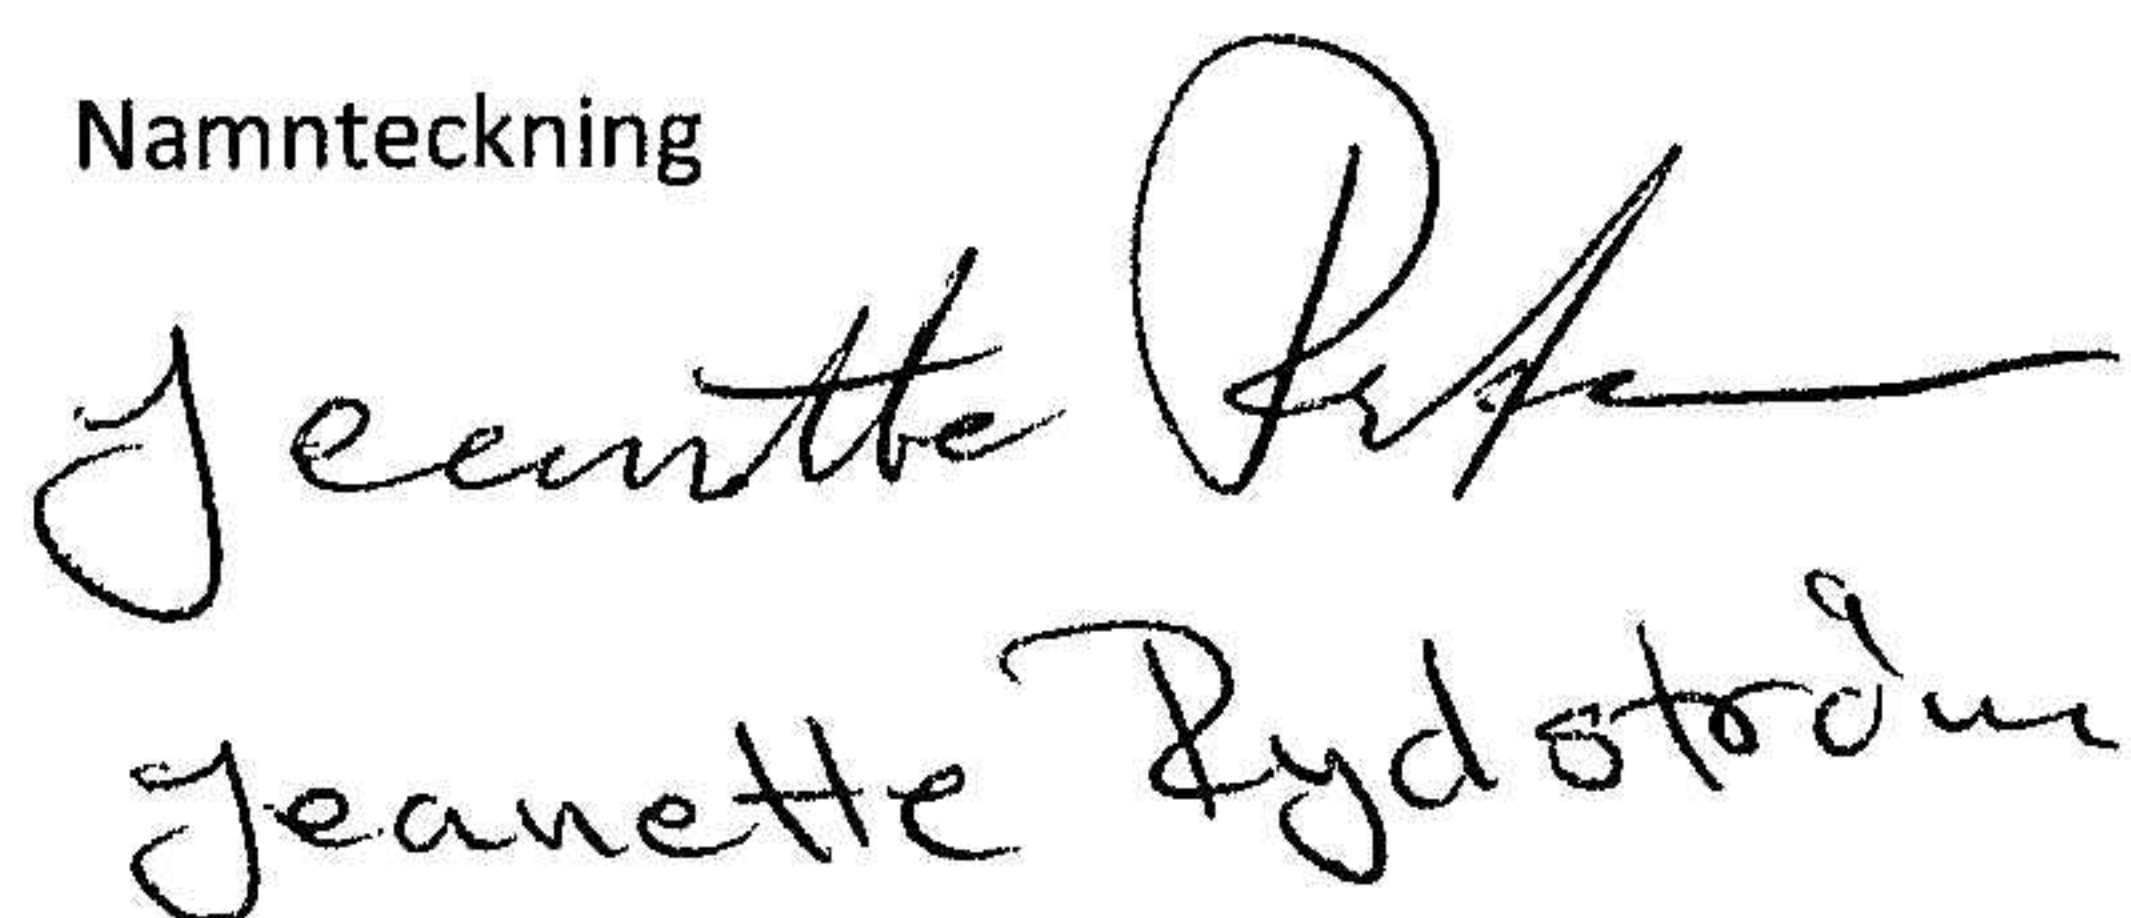 Namnteckning
Jeanette
Jeanette Rydström